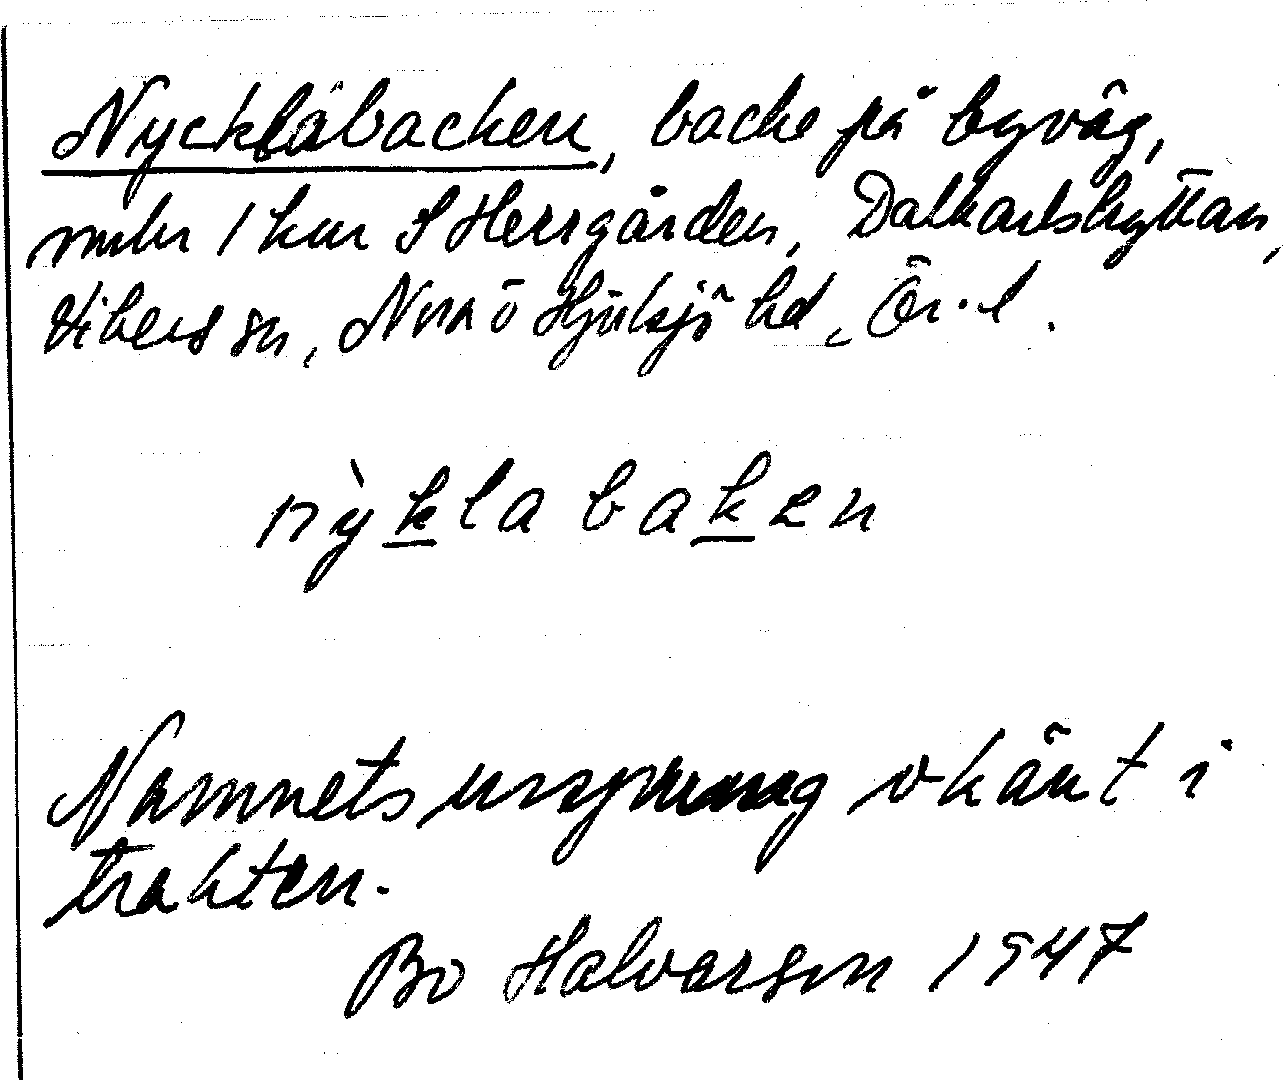 Nycklabacken, backe på byväg,
1 km S Herrgården, Dalkarlshyttan,
Vikers sn, Nora o Hjulsjö hd, Ör. l.
nỳklabaken
Namnets ursprung okänt i
trakten.
Bo Halvarson 1947